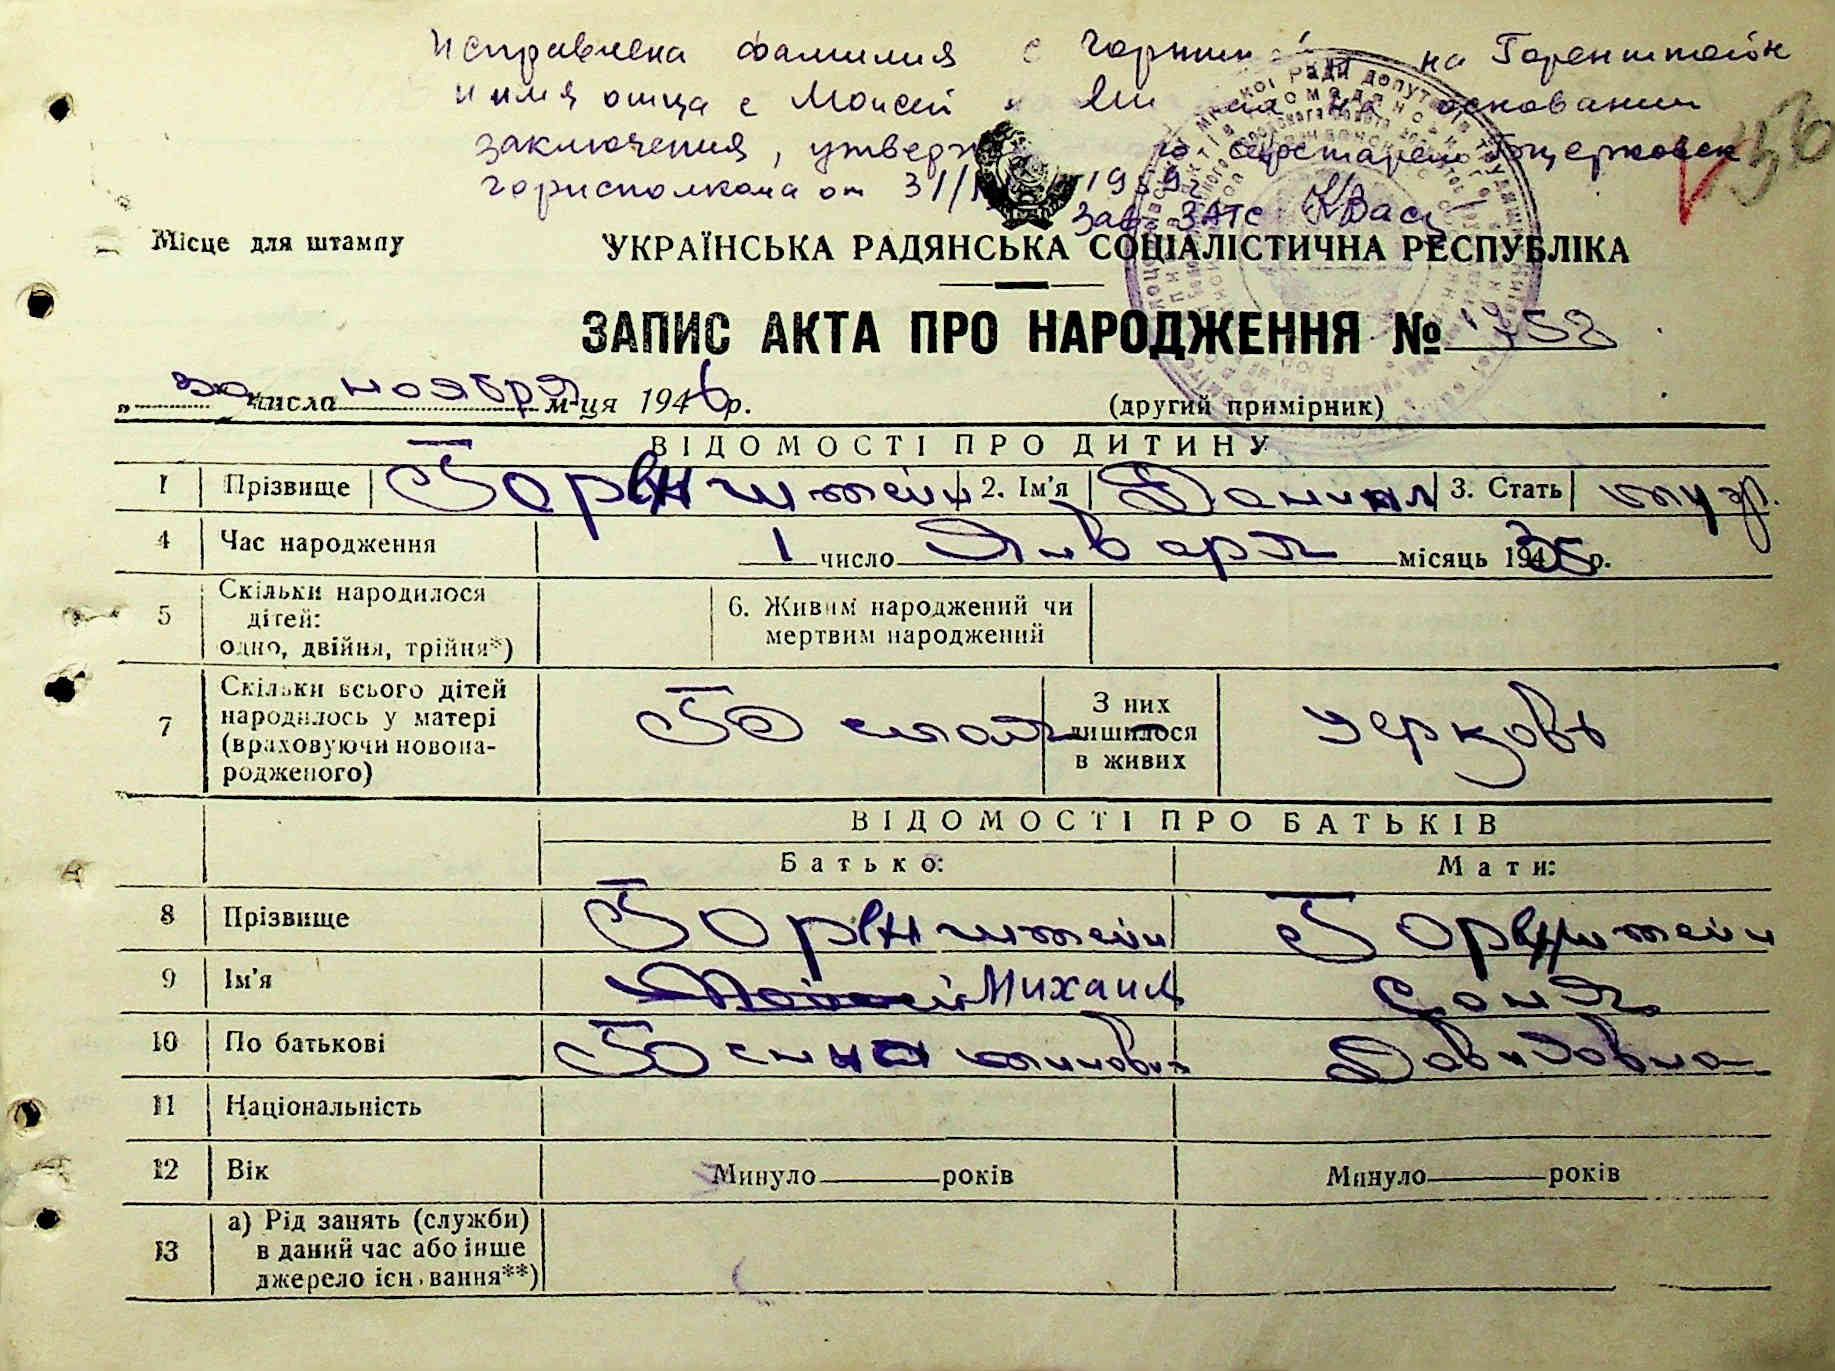 Исправлена фамилия с на Горенштейн
и имя отца с Моисей на основании
заключения,
горисполкома от 31/ 1959г
Зав. ЗАГС
Місце для штампу
УКРАЇНСЬКА РАДЯНСЬКА СОЦІАЛІСТИЧНА РЕСПУБЛІКА
ЗАПИС АКТА ПРО НАРОДЖЕННЯ № 1752
„30 числа ноября м-ця 1946 р. (другий примірник)
ВІДОМОСТІ ПРО ДИТИНУ
1 Прізвище Горенштейн 2. Ім'я Даниил 3. Стать муж.
4 Час народження 1 число Января місяць 1936 р.
5 Скільки народилося дітей: одно, двійня, трійня*) 6. Живим народжений чи мертвим народжений
7 Скільки всього дітей народилось у матері (враховуючи новонародженого) Белая З них лишилося в живих Церковь
ВІДОМОСТІ ПРО БАТЬКІВ
Батько: Мати:
8 Прізвище Горенштейн Горенштейн
9 Ім'я Моисей Михаил Соня
10 По батькові Давидовна
11 Національність
12 Вік Минуло років Минуло років
13 а) Рід занять (служби) в даний час або інше джерело існування**)